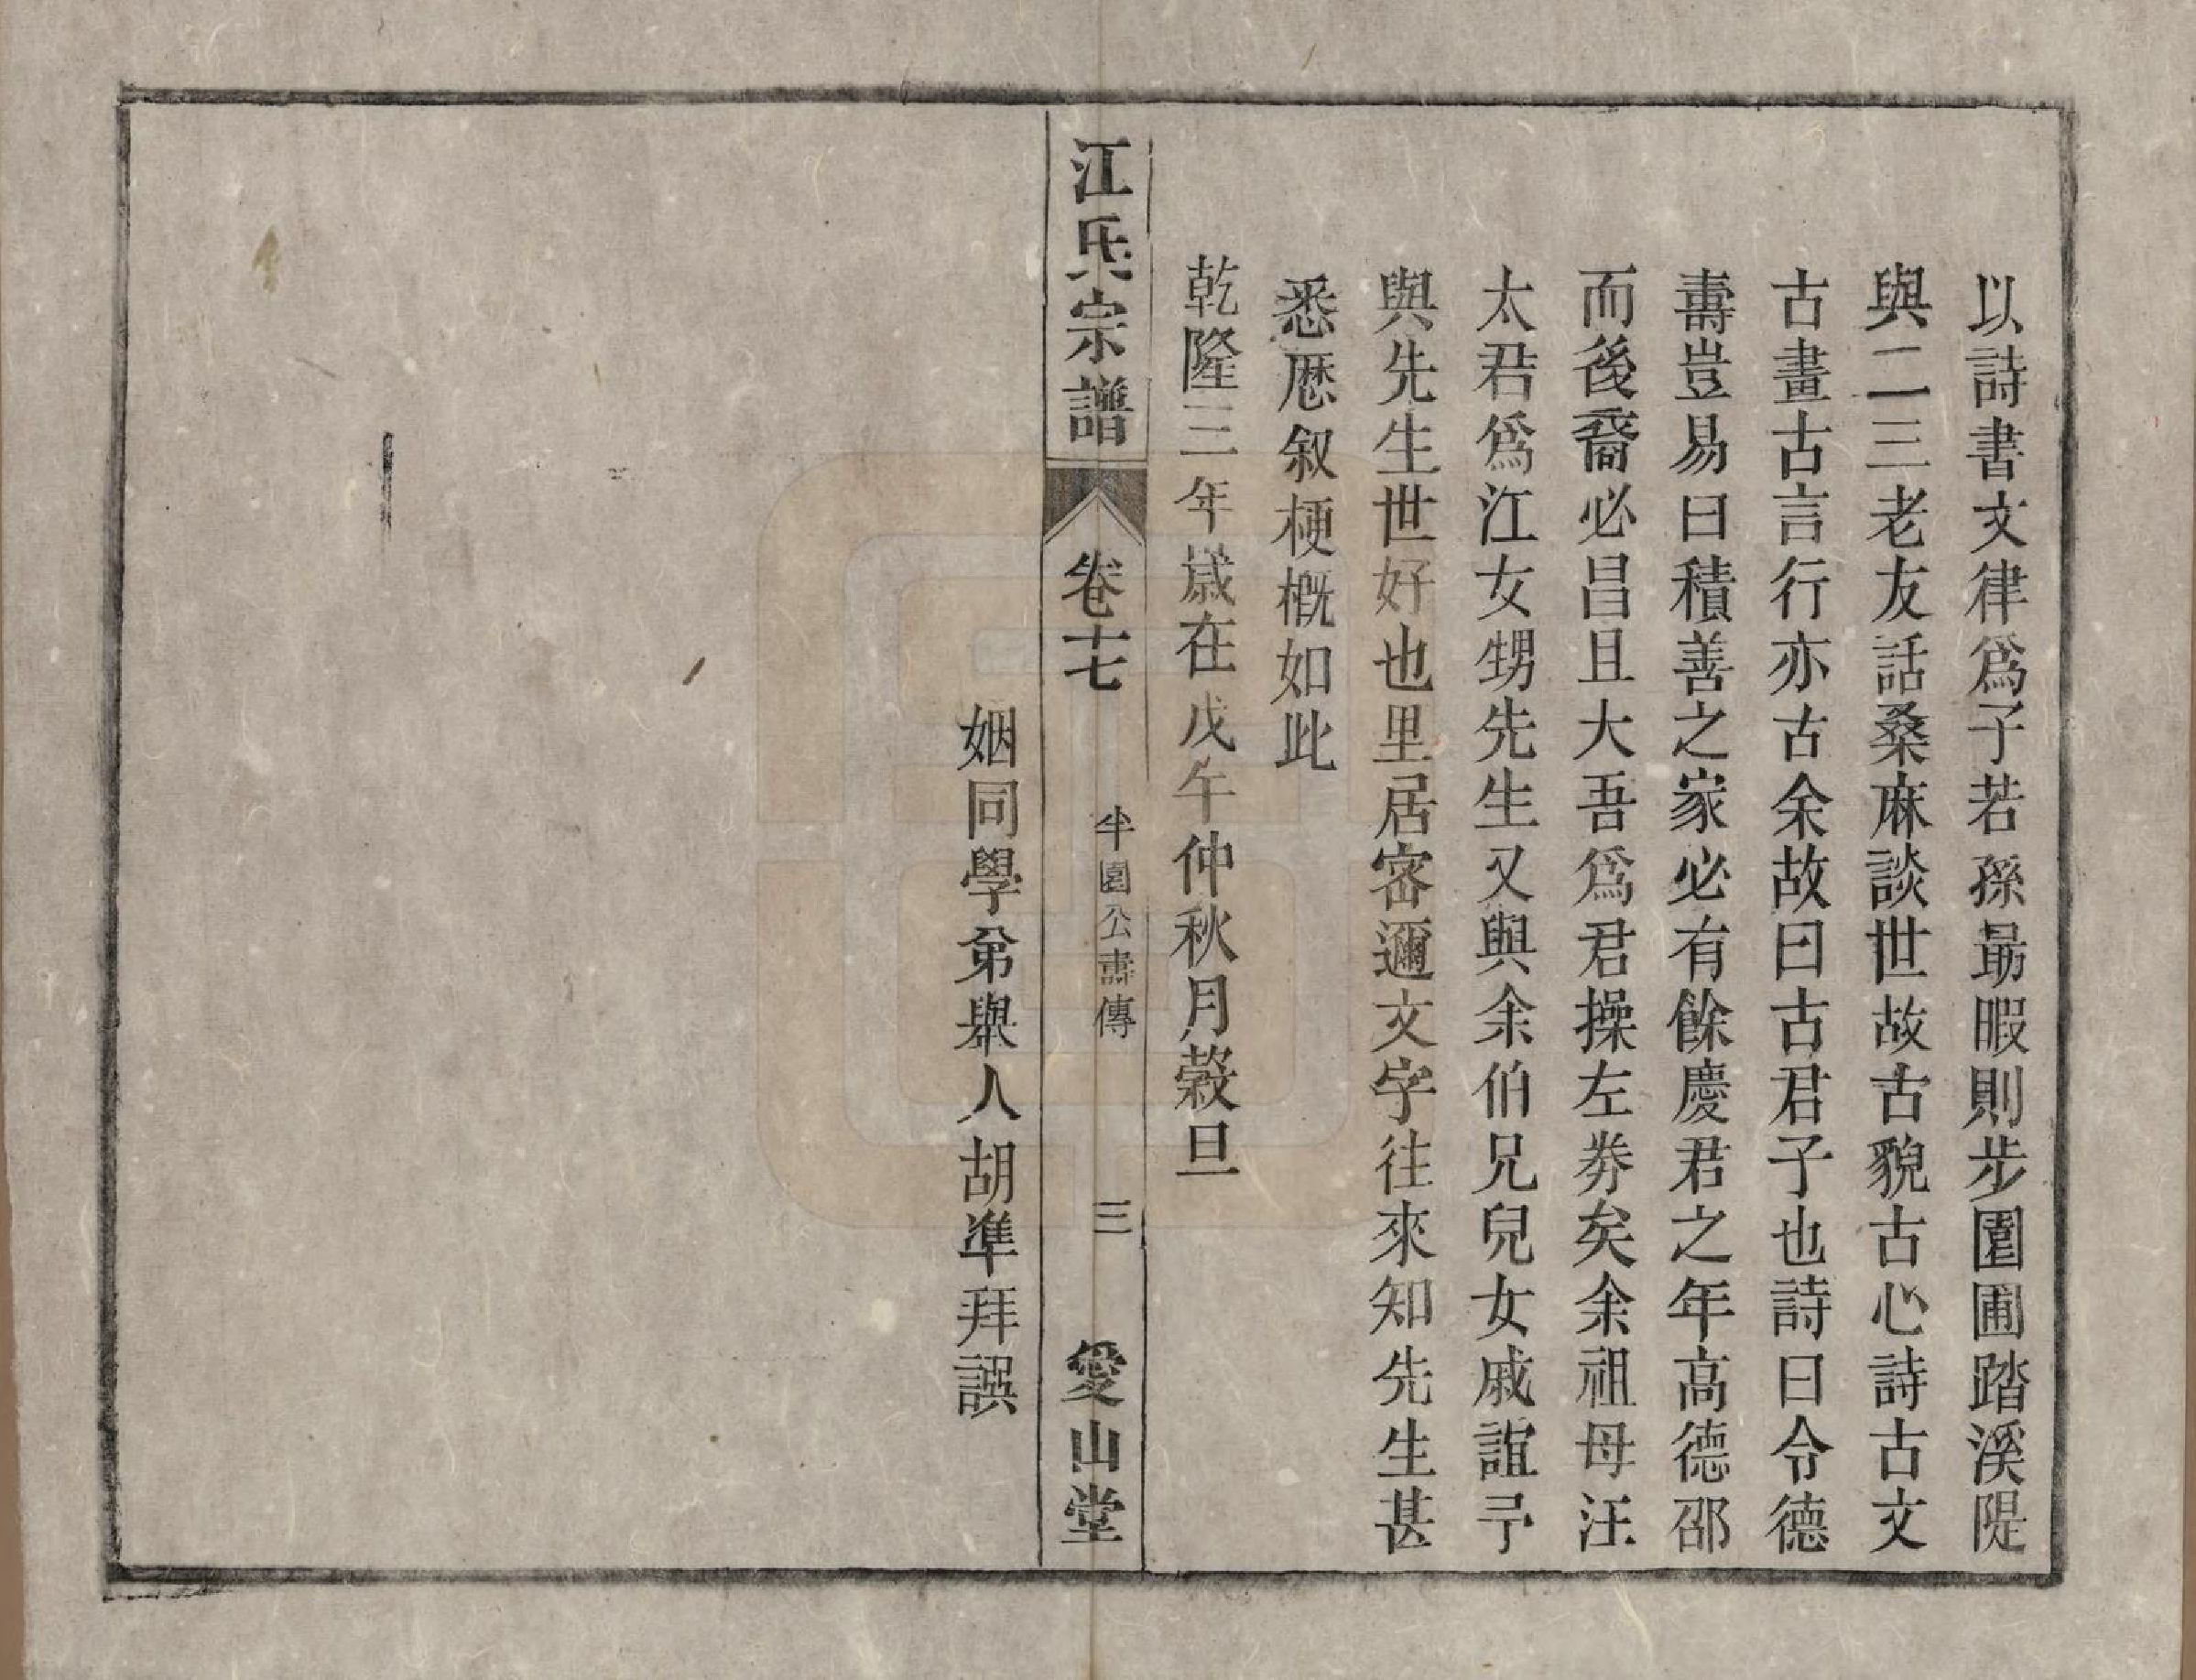 以詩書文律爲子若孫最暇則步園圃踏溪隄
與二三老友話桑麻談世故古貌古心詩古文
古畫古言行亦古余故曰古君子也詩曰令德
壽豈易曰積善之家必有餘慶君之年高德邵
而後裔必昌且大吾爲君操左券矣余祖母汪
太君爲江女甥先生又與余伯兄兒女戚誼予
與先生世好也里居密邇文字往來知先生甚
悉厯叙梗概如此
乾隆三年歲在戊午仲秋月榖旦
江氏宗譜
卷十七
半園公壽傳
三
愛山堂
姻同學弟舉人胡準拜譔